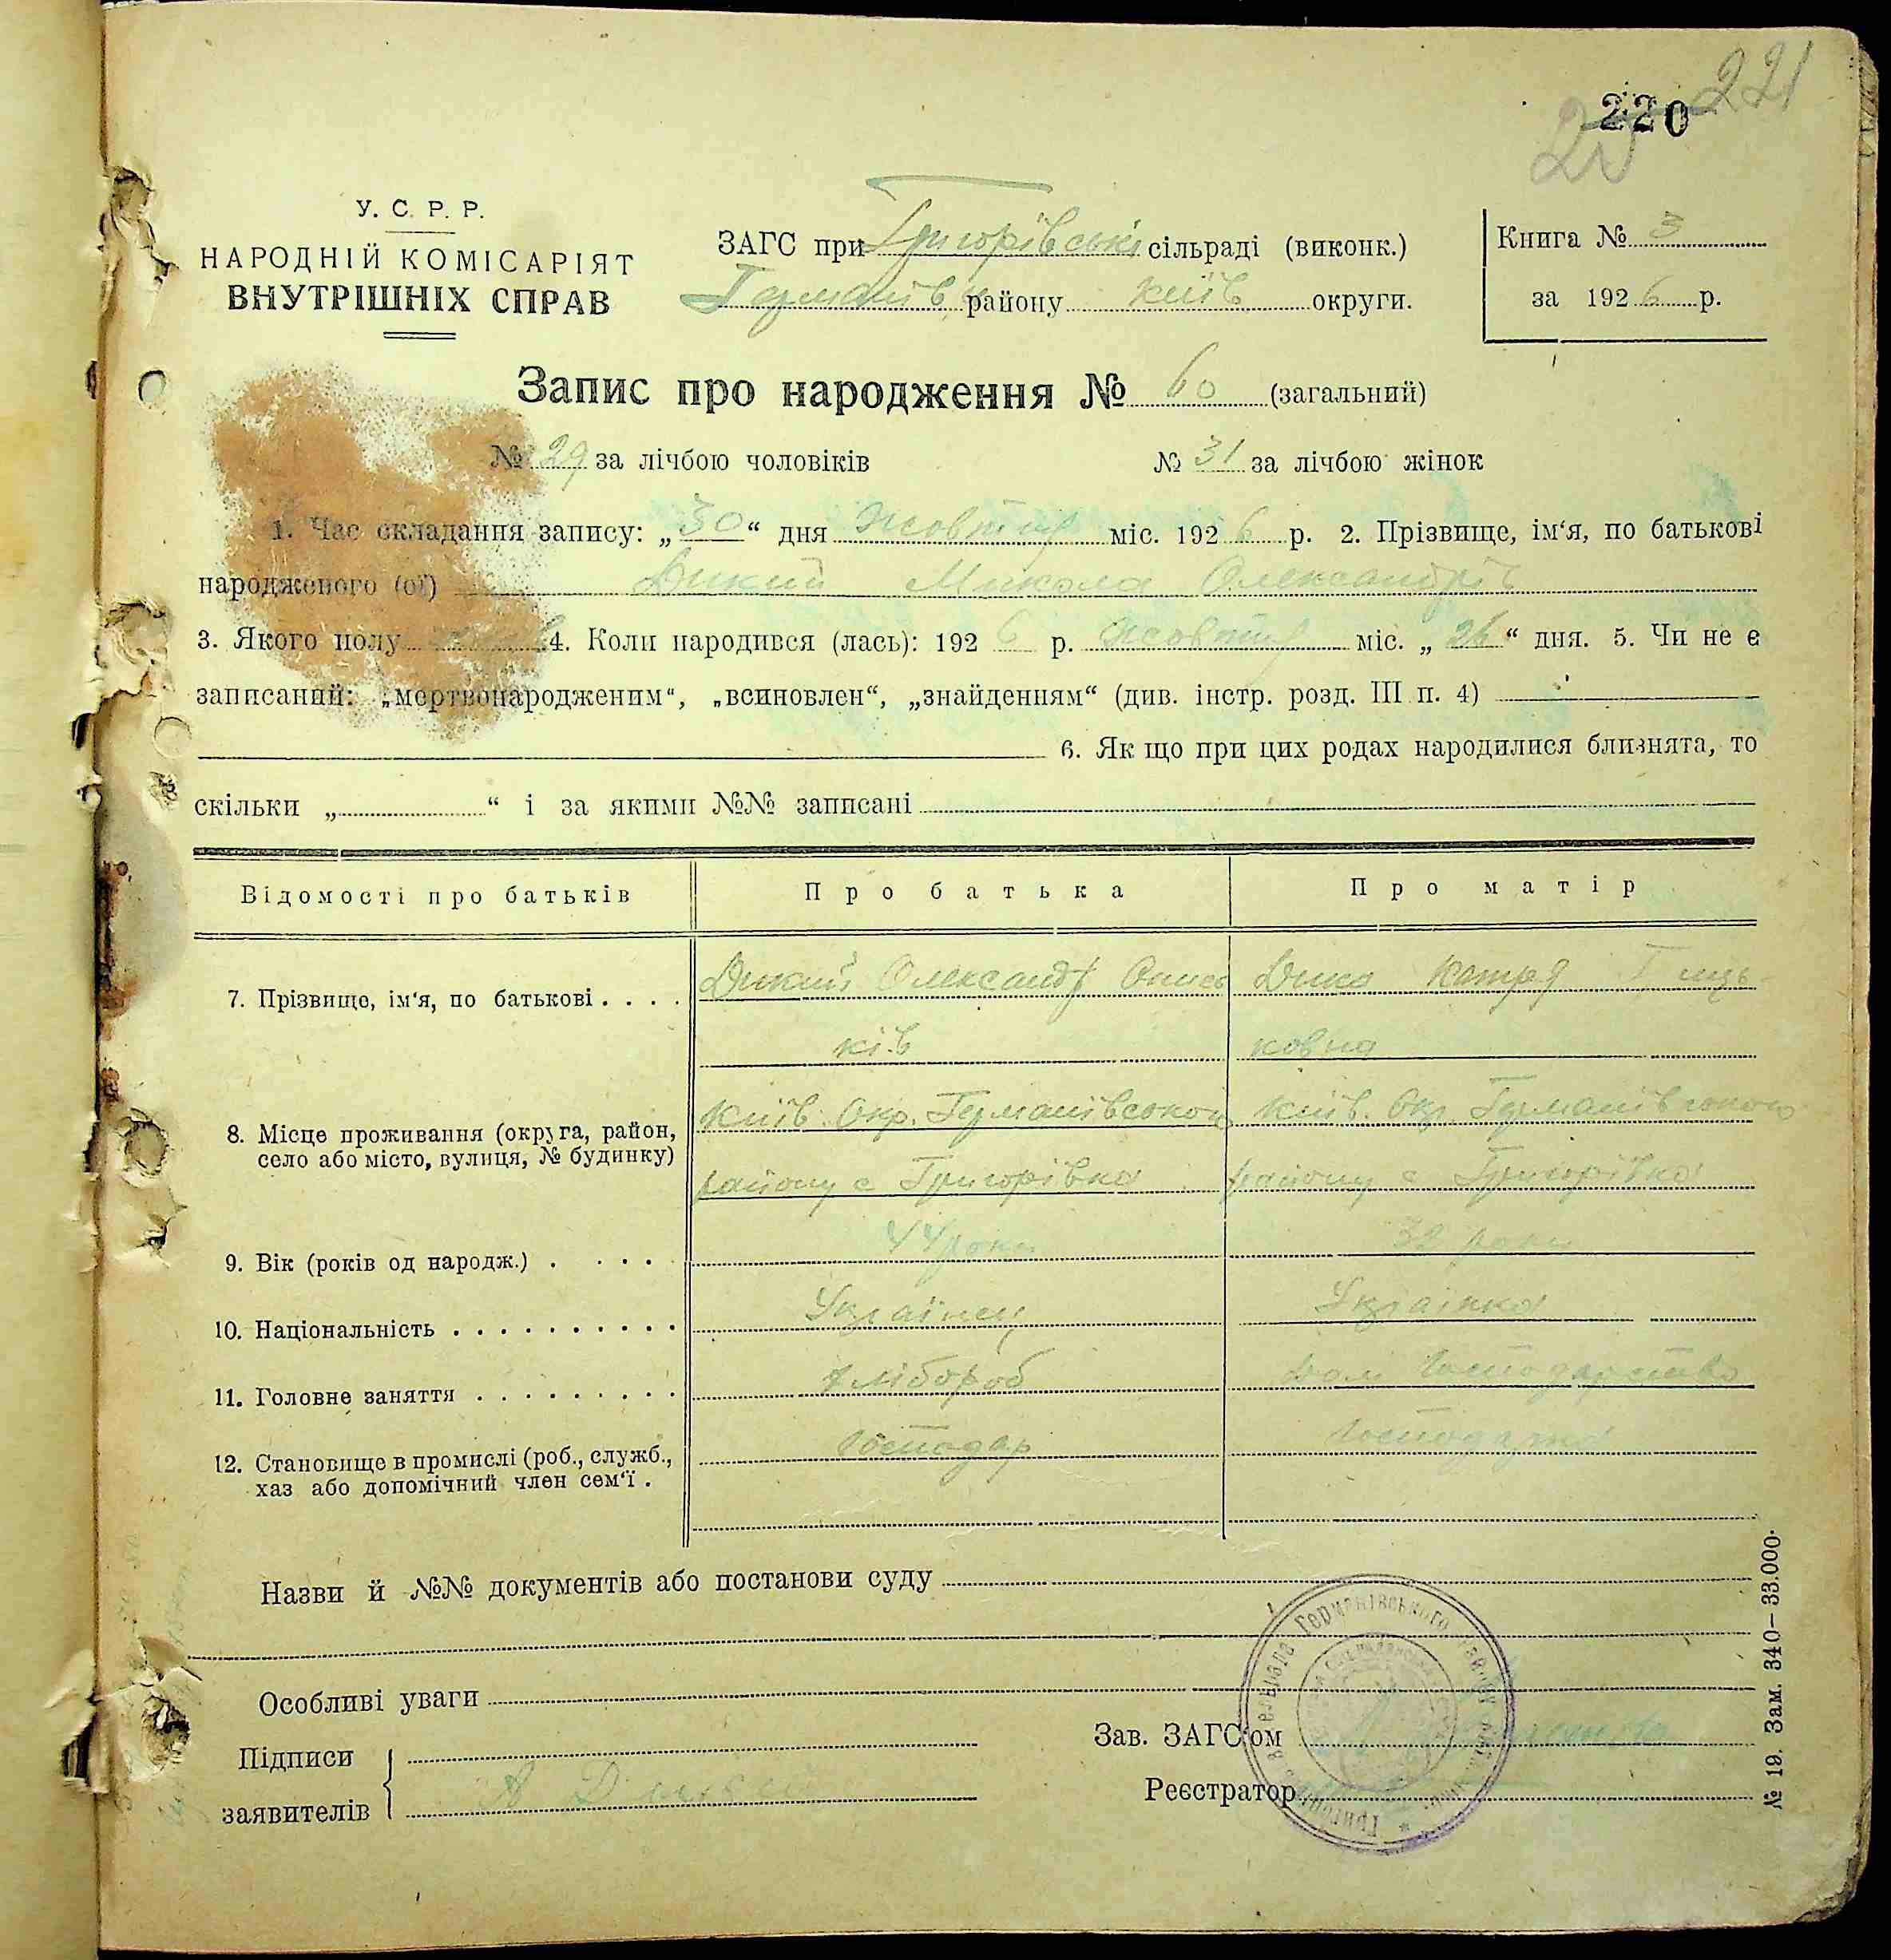 220 221
У. С. Р. Р.
НАРОДНІЙ КОМІСАРІЯТ
ВНУТРІШНІХ СПРАВ
ЗАГС при Григорівські сільраді (виконк.)
Германівськ району Київ округи.
Книга № 3
за 1926 р.
Запис про народження № 60 (загальний)
№ 29 за лічбою чоловіків № 31 за лічбою жінок
1. Час складання запису: „30“ дня жовтня міс. 1926 р. 2. Прізвище, ім‘я, по батькові
народженого (ої) Дикий Микола Олександрів
3. Якого полу 4. Коли народився (лась): 1926 р. жовтня міс. „26“ дня. 5. Чи не є
записаний: „мертвонародженим“, „всиновлен“, „знайденням“ (див. інстр. розд. III п. 4)
6. Як що при цих родах народилися близнята, то
скільки „ “ і за якими №№ записані
Відомості про батьків Про батька Про матір
7. Прізвище, ім‘я, по батькові . . . . Дикий Олександр Онись Дика Катря
ків ковна
8. Місце проживання (округа, район, село або місто, вулиця, № будинку) Київ. Окр. Германівського Київ. Окр. Германівського
району с Григорівка району с Григорівка
9. Вік (років од народж.) . . . . 44 роки 32 роки
10. Національність . . . . . . . . . . Українец Українка
11. Головне заняття . . . . . . . . . Хлібороб дом Господарство
12. Становище в промислі (роб., служб., Господар Господарка
хаз або допомічний член сем‘ї .
Назви й №№ документів або постанови суду
Особливі уваги
Підписи
заявителів
Зав. ЗАГС‘ом
Реєстратор
Германівського району
№ 19. Зам. 340—33.000.